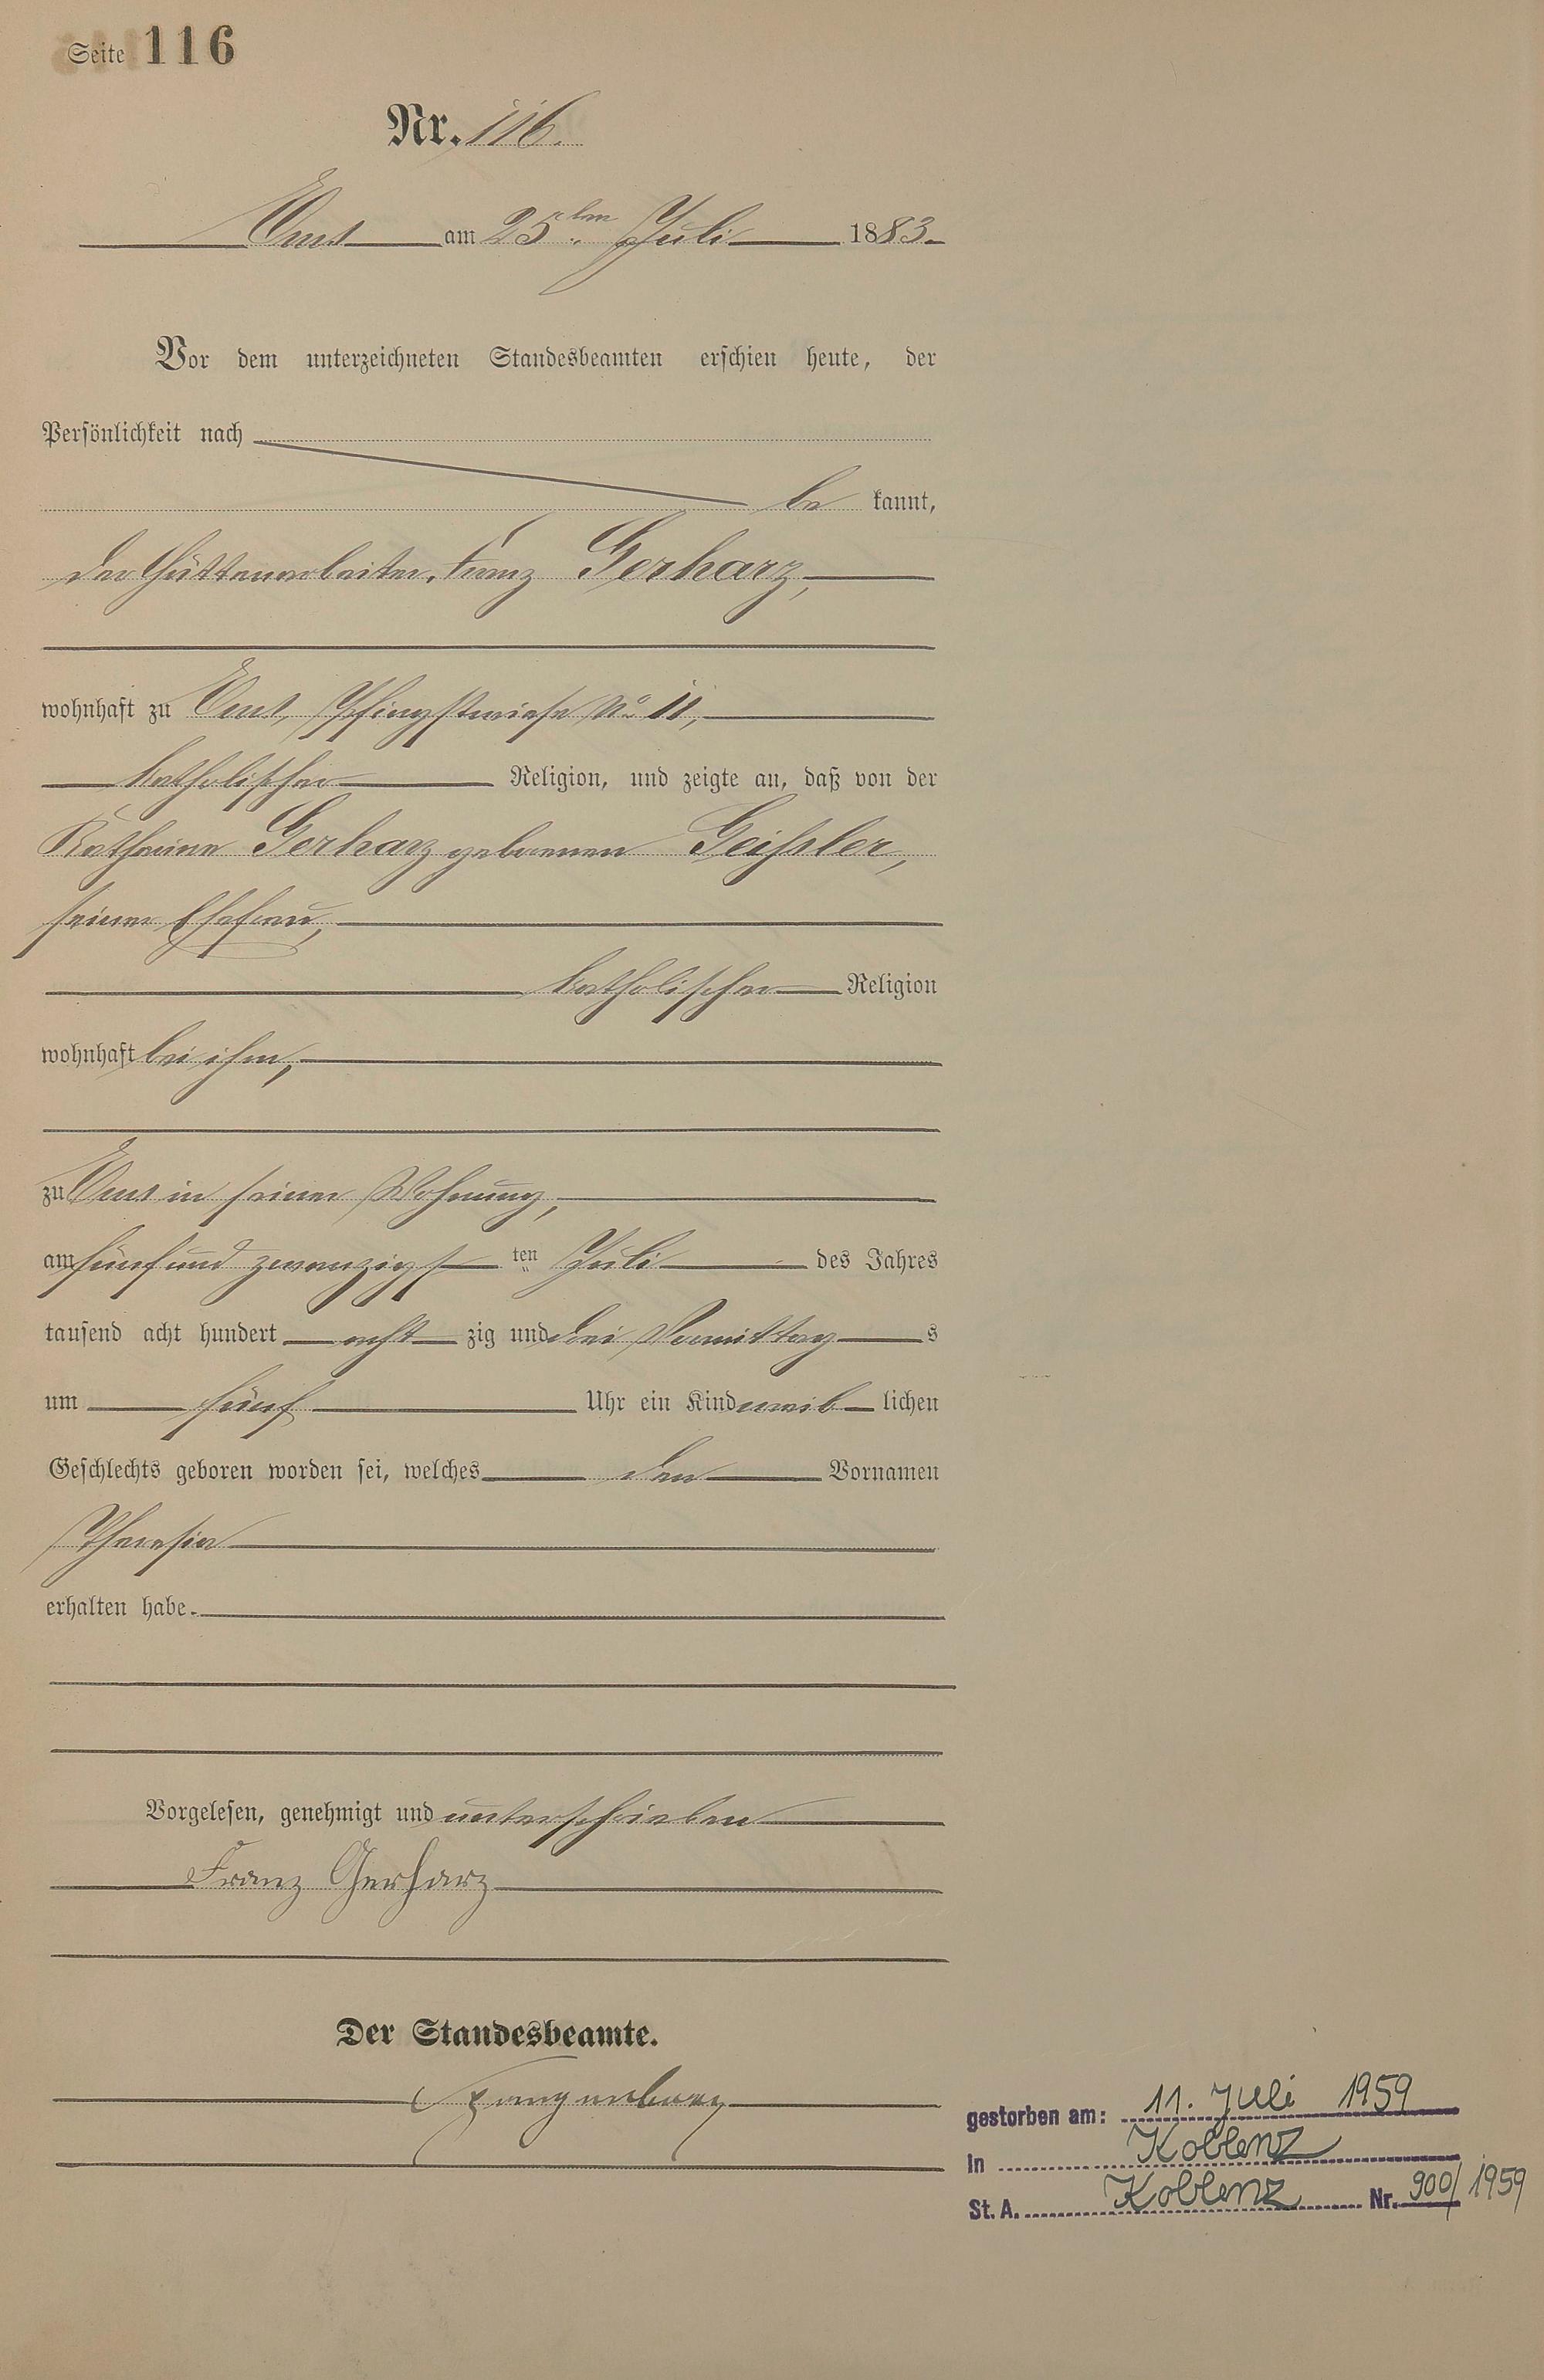 Seite 116
Nr. 116.
Ems am 25ten Juli 1883.
Vor dem unterzeichneten Standesbeamten erschien heute, der
Persönlichkeit nach
be kannt,
der Hüttenarbeiter, Franz Gerharz,
wohnhaft zu Ems, Pfingstwiese No 11,
katholischer Religion, und zeigte an, daß von der
Katharine Gerharz geborenen Geißler,
seiner Ehefrau,
katholischer Religion
wohnhaft bei ihm,
zu Ems in seiner Wohnung,
am fünfund zwanzigst ten Juli des Jahres
tausend acht hundert acht zig und drei Vormittag s
um fünf Uhr ein Kind weib lichen
Geschlechts geboren worden sei, welches den Vornamen
Theresia
erhalten habe.
Vorgelesen, genehmigt und unterschrieben
Franz Gerharz
Der Standesbeamte.
gestorben am: 11. Juli 1959
in Koblenz
St. A. Koblenz Nr. 900/1959